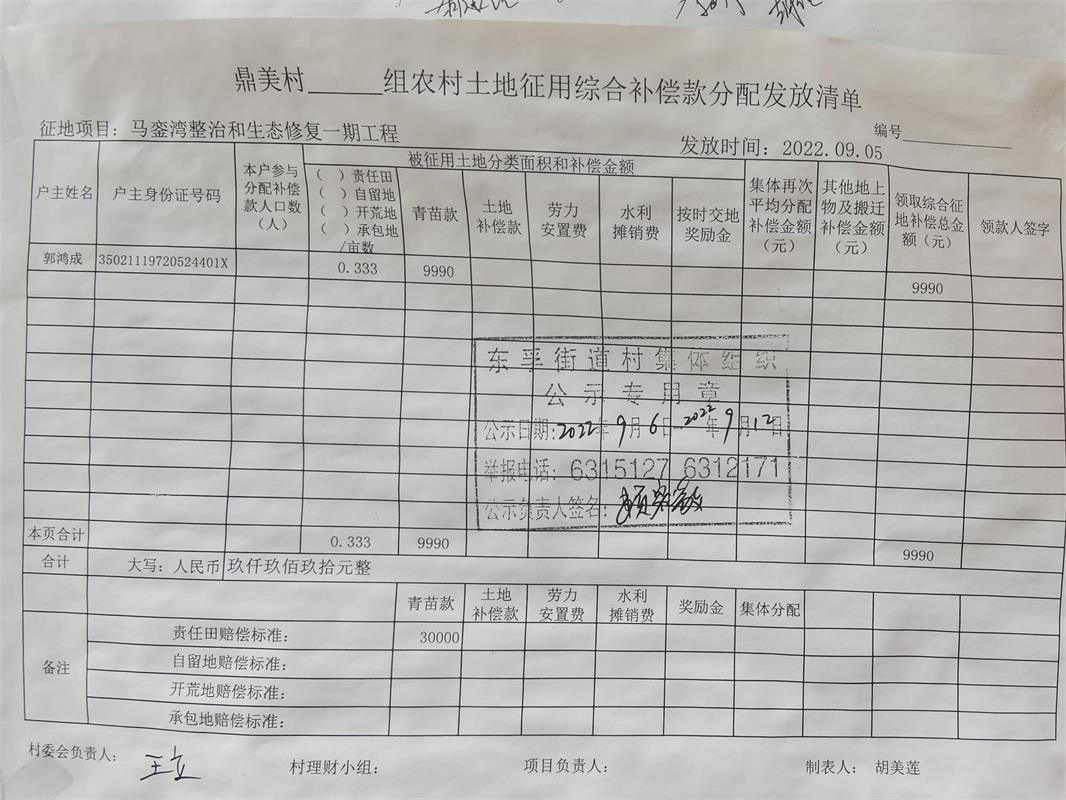 鼎美村______组农村土地征用综合补偿款分配发放清单
编号
征地项目：马銮湾整治和生态修复一期工程
发放时间：2022.09.05
户主姓名
户主身份证号码
本户参与
分配补偿
款人口数
（人）
被征用土地分类面积和补偿金额
（ ）责任田
（ ）自留地
（ ）开荒地
（ ）承包地
/亩数
青苗款
土地
补偿款
劳力
安置费
水利
摊销费
按时交地
奖励金
集体再次
平均分配
补偿金额
（元）
其他地上
物及搬迁
补偿金额
（元）
领取综合征
地补偿总金
额（元）
领款人签字
郭鸿成 35021119720524401X 0.333 9990 9990
东孚街道村集体组织
公示专用章
公示日期：2022年9月6日 2022年9月12日
举报电话：6315127 6312171
公示负责人签名：
本页合计 0.333 9990 9990
合计 大写：人民币 玖仟玖佰玖拾元整
备注
青苗款
土地
补偿款
劳力
安置费
水利
摊销费
奖励金
集体分配
责任田赔偿标准： 30000
自留地赔偿标准：
开荒地赔偿标准：
承包地赔偿标准：
村委会负责人： 王立
村理财小组：
项目负责人：
制表人： 胡美莲